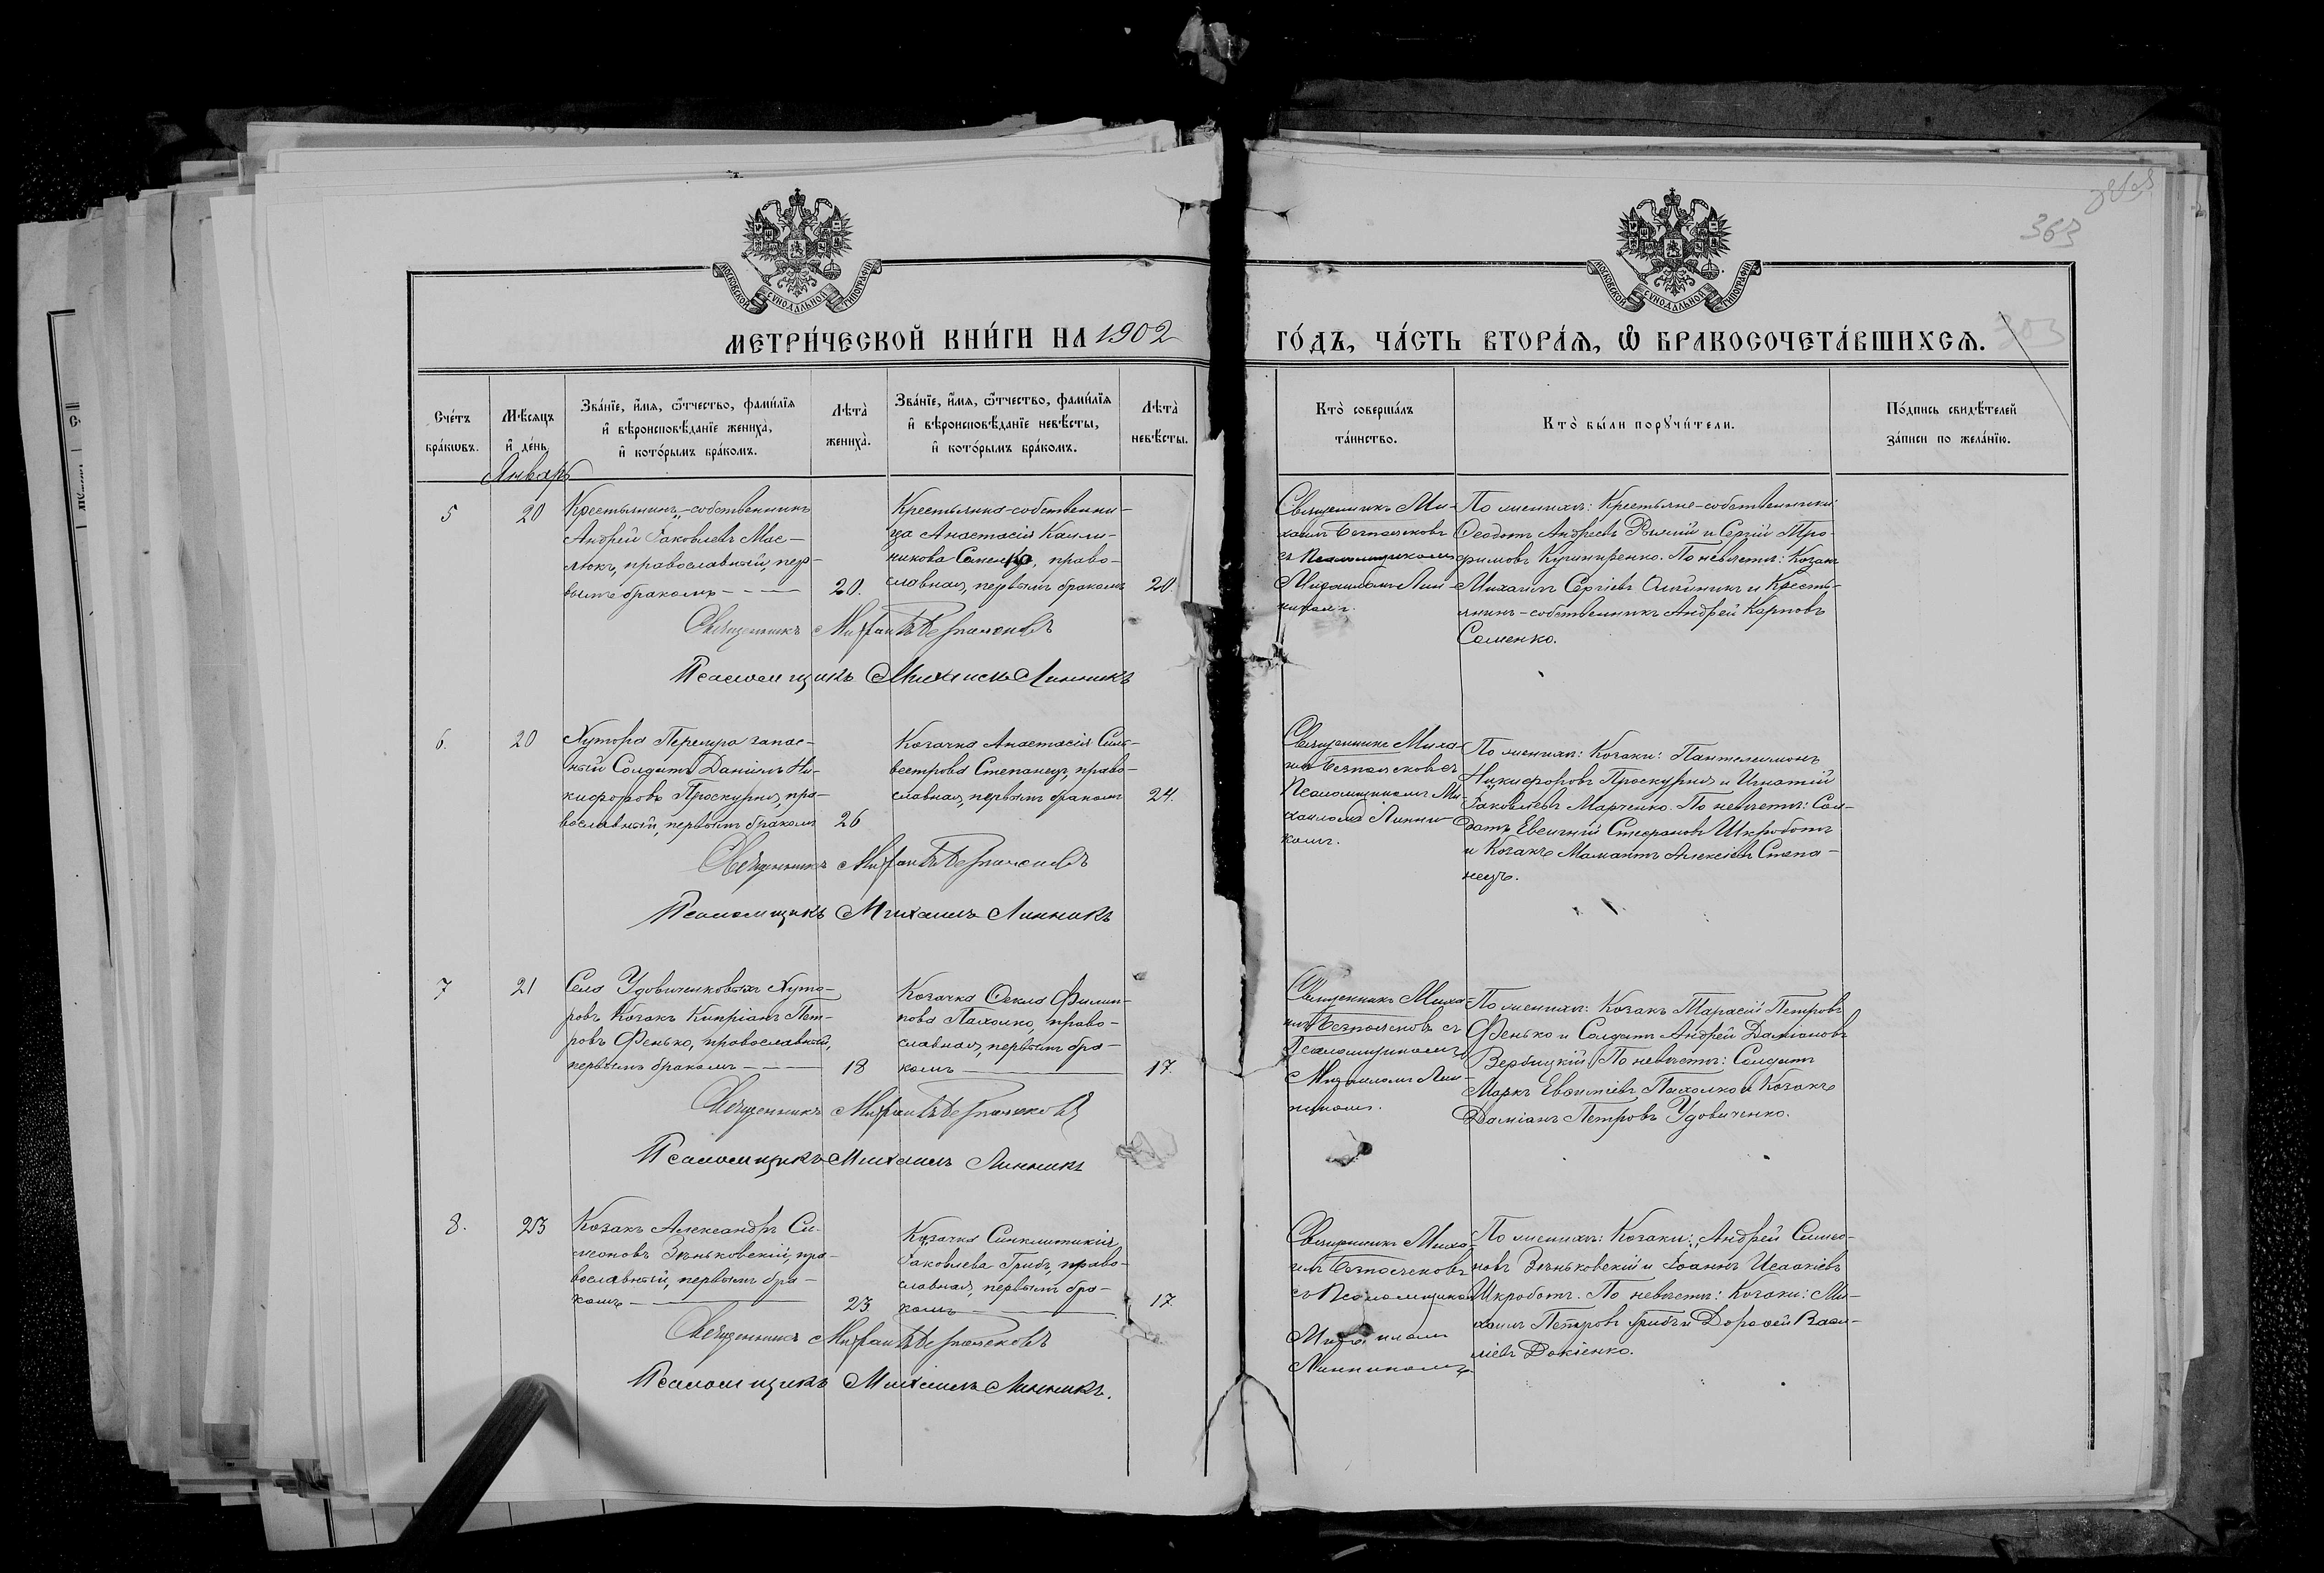 363
МОСКОВСКОЙ СѴНОДАЛЬНОЙ ТИПОГРАФІИ
МОСКОВСКОЙ СѴНОДАЛЬНОЙ ТИПОГРАФІИ
МЕТРИ́ЧЕСКОЙ КНИ́ГИ НА 1902
ГО́ДЪ, ЧА́СТЬ ВТОРА́Ѧ, Ѽ БРАКОСОЧЕТА́ВШИХСѦ.
Сче́тъ
бра́кѡвъ.
Мѣ́сяцъ
и҆ де́нь.
Зва́нїе, и҆́мѧ, ѻ҆́тчество, фами́лїѧ
и҆ вѣроисповѣ́данїе жениха̀,
и҆ кото́рымъ бра́комъ.
Лѣта̀
жениха̀.
Зва́нїе, и҆́мѧ, ѻ҆́тчество, фами́лїѧ
и҆ вѣроисповѣ́данїе невѣ́сты,
и҆ кото́рымъ бра́комъ.
Лѣта̀
невѣ́сты.
Кто̀ соверша́лъ
та́инство.
Кто̀ бы́ли порꙋчи́тели.
По́дпись свидѣ́телей
за́писи по жела́нїю.
Январь
5
20
Крестьянинъ-собственникъ
Андрей Іаковлевъ Мас-
люкъ, православный, пер-
вымъ бракомъ
20.
Крестьянка-собственни-
ца Анастасія Кали-
никова Саменко, право-
славная, первымъ бракомъ
20
Священникъ Ми-
хаилъ Безпалчековъ
съ Псаломщикомъ
Михаиломъ Лин-
никомъ.
По женихѣ: Крестьяне-собственники
Ѳеодотъ Андреевъ Рымій и Сергій Тро-
фимовъ Кушниренко. По невѣстѣ: Козакъ
Михаилъ Сергіевъ Олійникъ и Кресть-
янинъ-собственникъ Андрей Карповъ
Саменко.
Священникъ Михаилъ Безпалчековъ
Псаломщикъ Михаилъ Линникъ
6.
20
Хутора Перещра запас-
ный Солдатъ Даніилъ Ни-
кифоровъ Проскурня, пра-
вославный, первымъ бракомъ
26
Козачка Анастасія Силь-
вестрова Степанецъ, право-
славная, первымъ бракомъ
24.
Священникъ Миха-
илъ Безпалчековъ съ
Псаломщикомъ Ми-
хаиломъ Линни-
комъ.
По женихѣ: Козаки: Пантелеимонъ
Никифоровъ Проскурня и Игнатій
Іаковлевъ Марченко. По невѣстѣ: Сол-
датъ Евгеній Стефановъ Шкроботъ
и Козакъ Мамантъ Алексіевъ Степа-
нецъ.
Священникъ Михаилъ Безпалчековъ
Псаломщикъ Михаилъ Линникъ
7
21
Села Удовиченковыхъ Хуто-
ровъ Козакъ Кипріанъ Пет-
ровъ Фенько, православный,
первымъ бракомъ
18
Козачка Ѳекла Филип-
пова Пахолко, право-
славная, первымъ бра-
комъ
17.
Священникъ Миха-
илъ Безпалчековъ съ
Псаломщикомъ
Михаиломъ Лин-
никомъ.
По женихѣ: Козакъ Тарасій Петровъ
Фенько и Солдатъ Андрей Даміановъ
Вербицкій. По невѣстѣ: Солдатъ
Маркъ Евѳиміевъ Пахолко и Козакъ
Даміанъ Петровъ Удовиченко.
Священникъ Михаилъ Безпалчековъ
Псаломщикъ Михаилъ Линникъ
8.
23
Козакъ Александръ Си-
меоновъ Зѣньковскій, пра-
вославный, первымъ бра-
комъ
23
Козачка Синклитикія
Іаковлева Грибъ, право-
славная, первымъ бра-
комъ
17.
Священникъ Миха-
илъ Безпалчековъ
съ Псаломщикомъ
Михаиломъ
Линникомъ
По женихѣ: Козаки: Андрей Симео-
новъ Зѣньковскій и Іоаннъ Исаакіевъ
Шкроботъ. По невѣстѣ: Козаки: Ми-
хаилъ Петровъ Грибъ и Дороѳей Васи-
ліевъ Докіенко.
Священникъ Михаилъ Безпалчековъ
Псаломщикъ Михаилъ Линникъ.